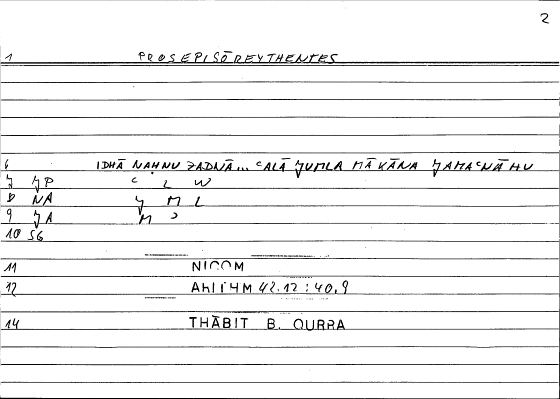 2
1 PROSEPISŌREYTHENTES
6 IDHĀ NAḤNU ZADNĀ... ʿALĀ JUMLA MĀKĀNA JAMAʿNĀHU
7 JP ʿ L W
8 NA J M L
9 JA M ʾ
10 SG
11 NICOM
12 ARITHM 42.12 : 40,9
14 THĀBIT B. QURRA